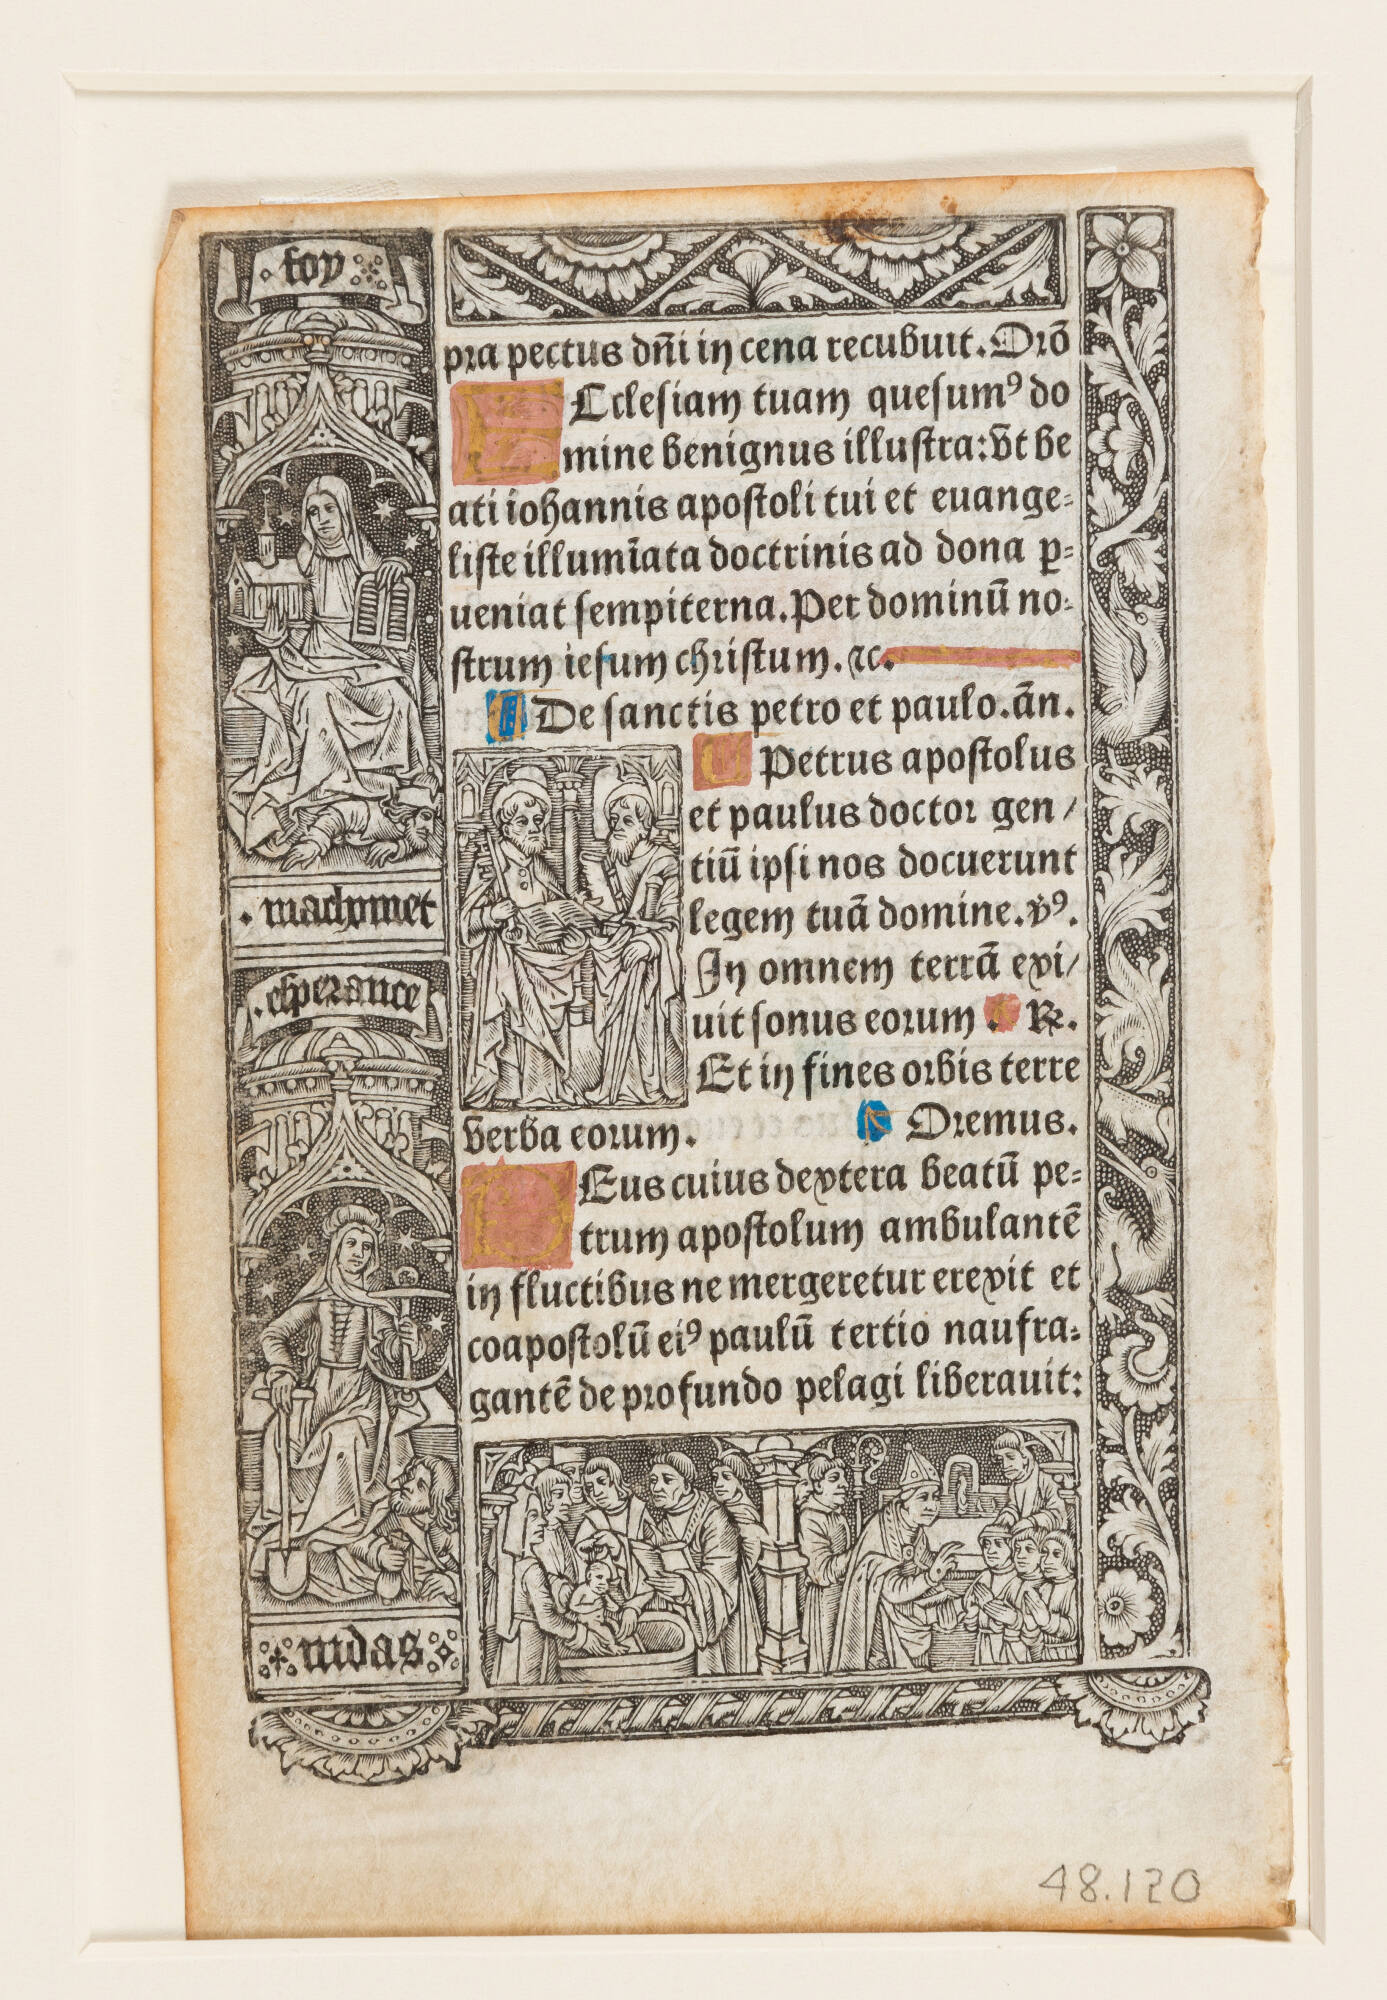 . foy
pra pectus dñi in cena recubuit. Orõ
ECclesiam tuam quesumꝰ do
mine benignus illustra: vt be
ati iohannis apostoli tui et euange-
liste illumīata doctrinis ad dona ꝑ-
ueniat sempiterna. Per dominū no-
strum iesum christum. ⁊c.
De sanctis petro et paulo. ān.
Petrus apostolus
et paulus doctor gen/
tiū ipsi nos docuerunt
legem tuā domine. v̾ꝰ.
In omnem terrā exi/
uit sonus eorum. ℟.
Et in fines orbis terre
verba eorum.
Oremus.
DEus cuius dextera beatū pe-
trum apostolum ambulantē
in fluctibus ne mergeretur erexit et
coapostolū eiꝰ paulū tertio naufra-
gantē de profundo pelagi liberauit:
. machomet
. esperance
iudas
48.120